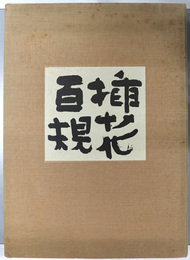 挿花
百規